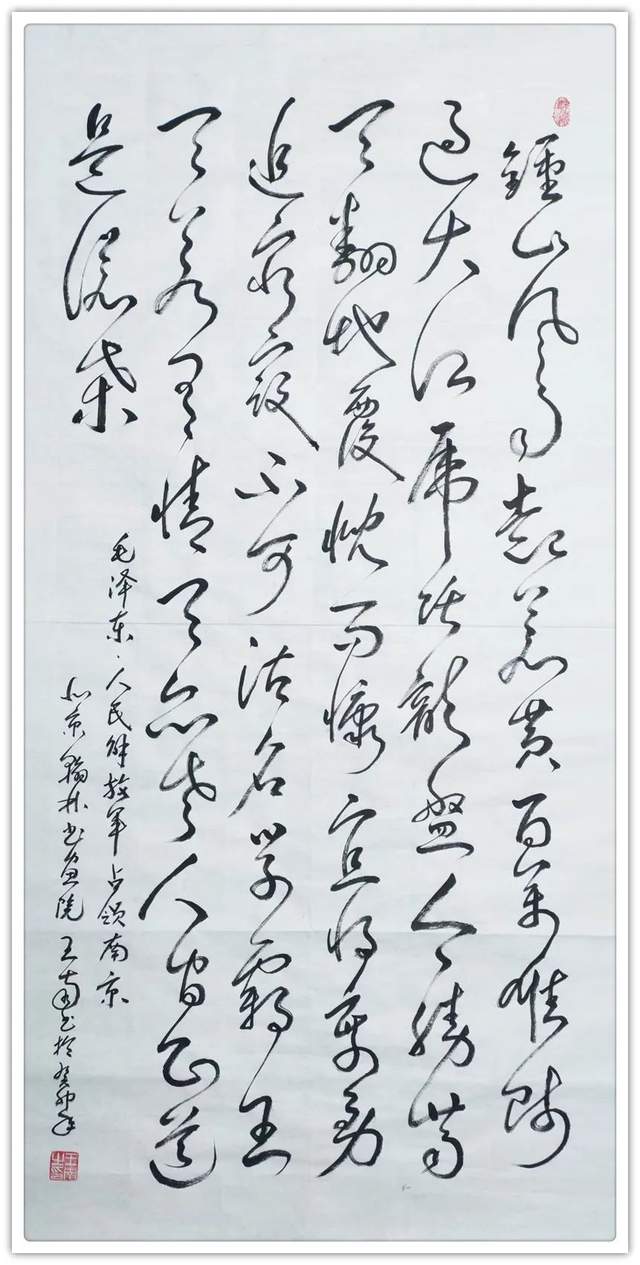 鍾山风雨起苍黄百万雄师
过大江虎踞龍盘今勝昔
天翻地覆慨而慷宜将剩勇
追穷寇不可沽名学霸王
天若有情天亦老人间正道
是沧桑
毛泽东·人民解放军占领南京
北京翰林书画院 王南书於癸卯年
王南之印